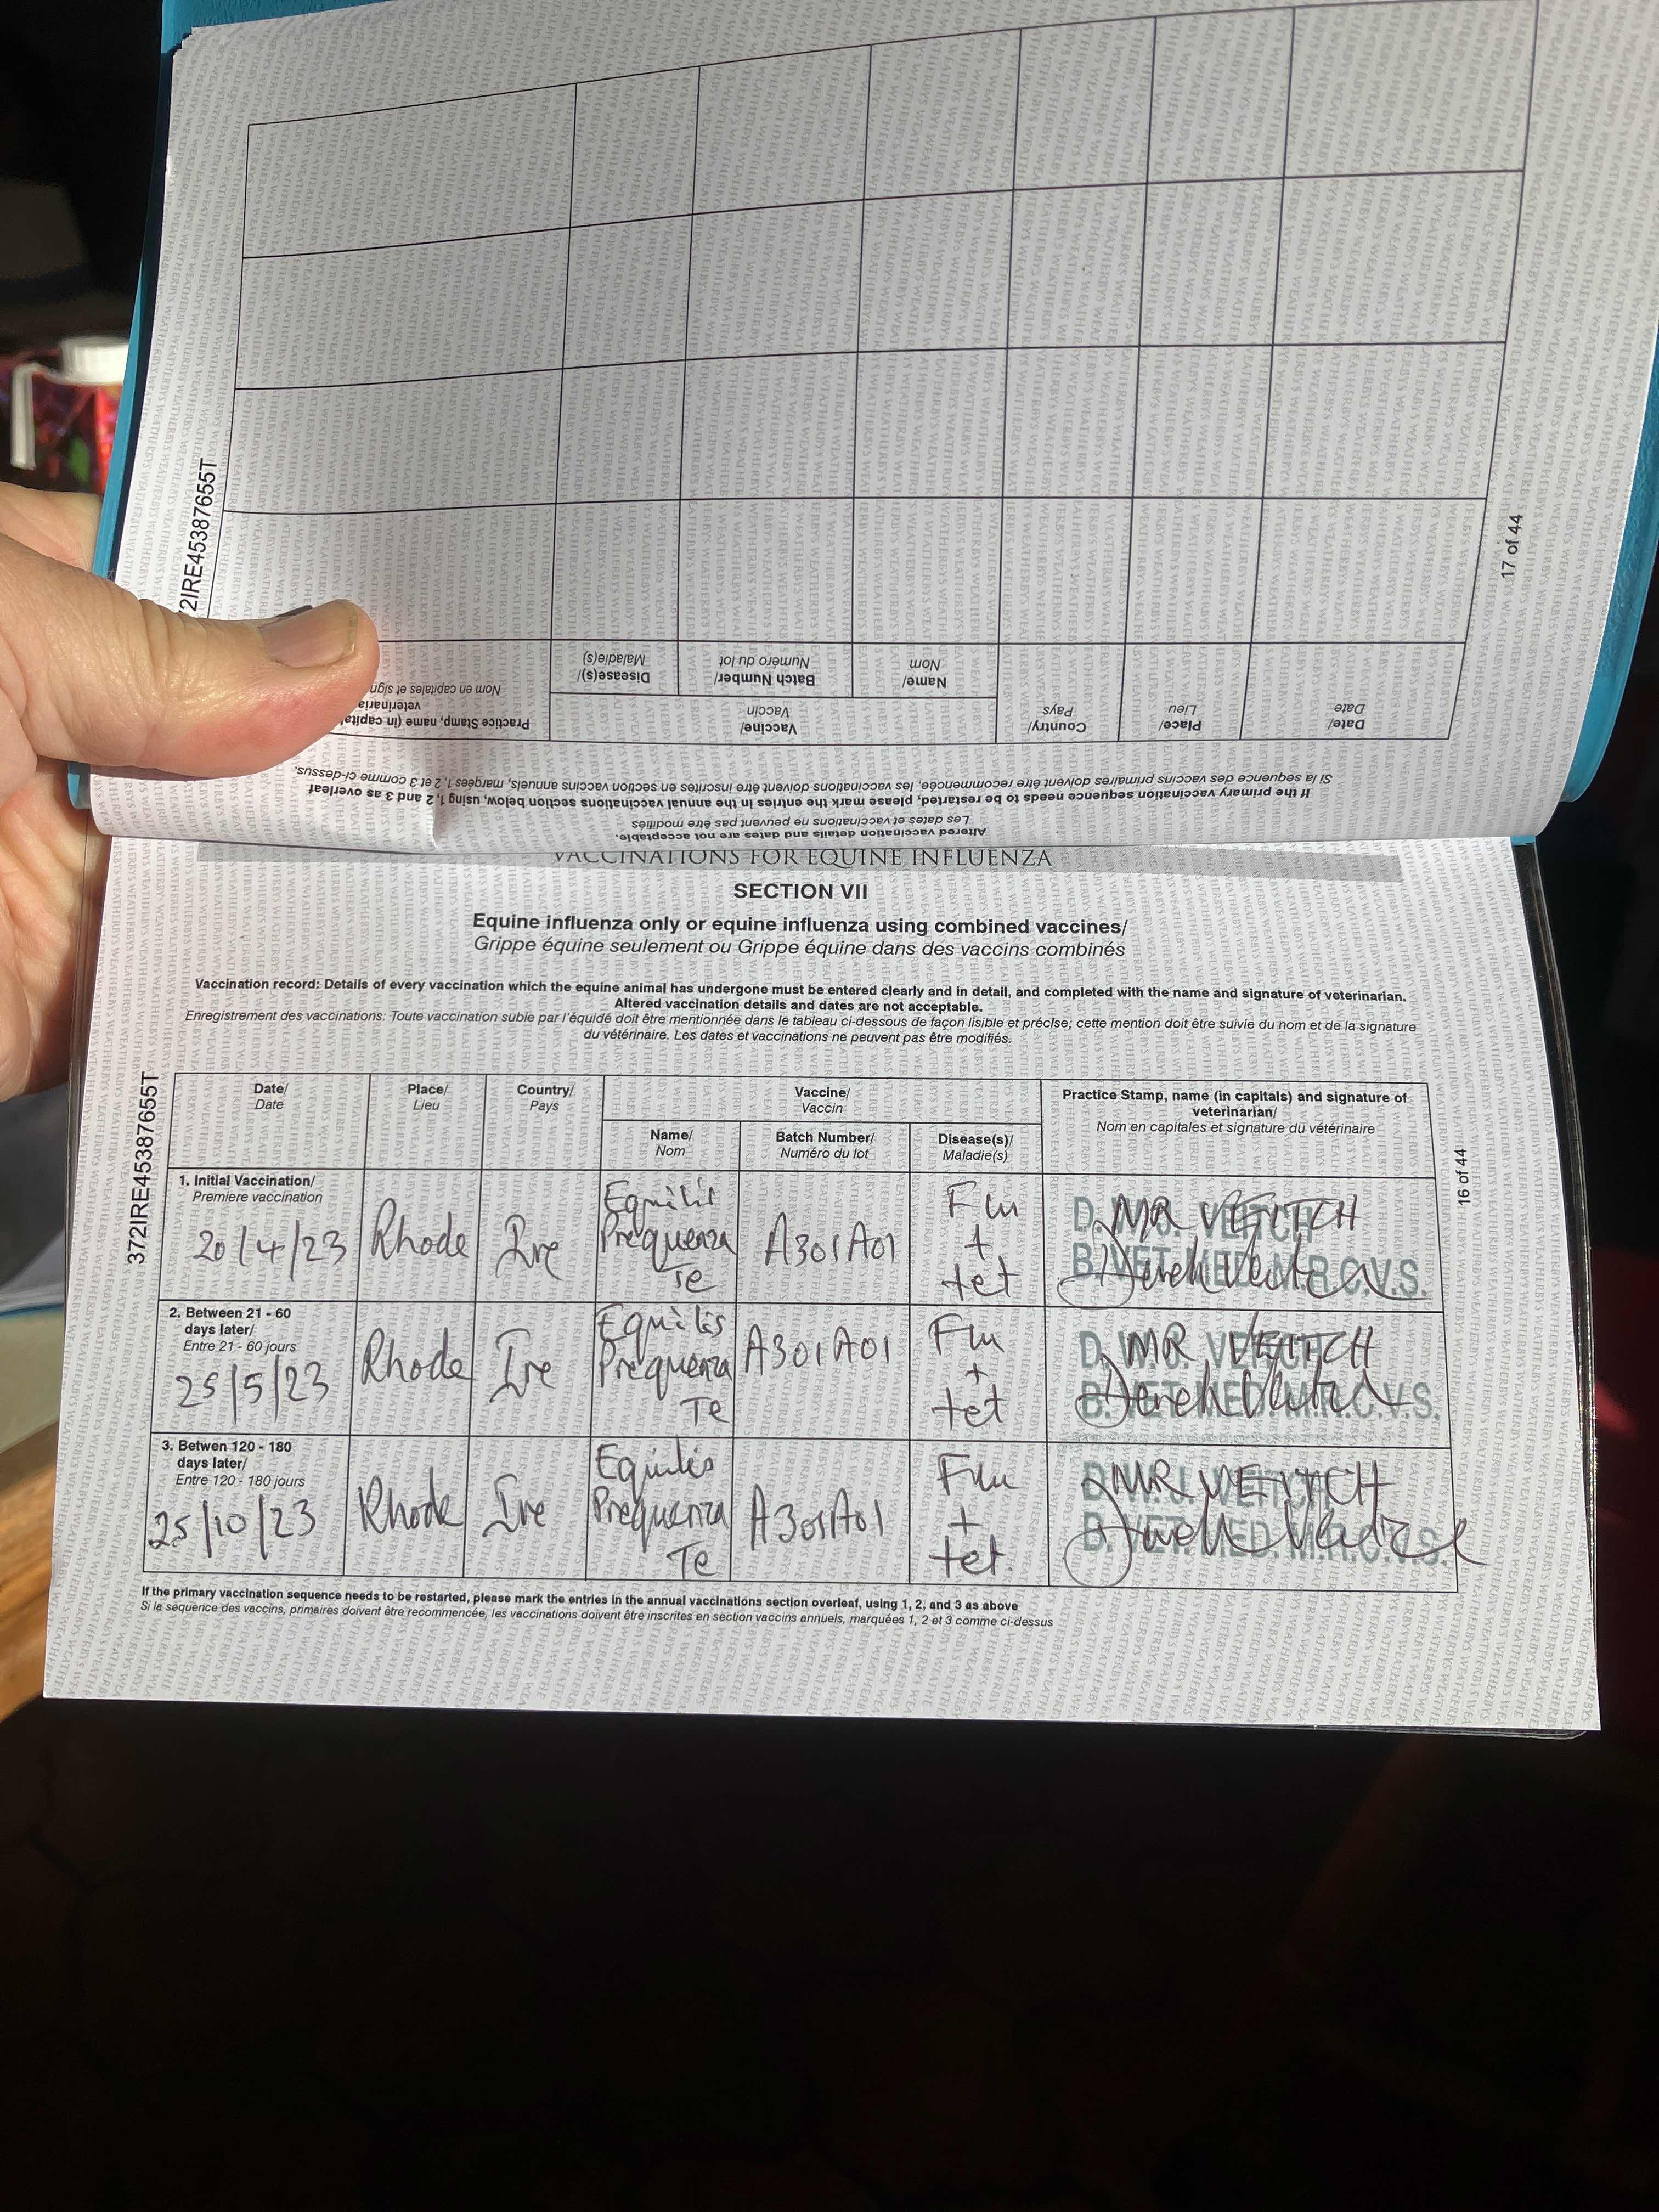 372IRE45387655T
17 of 44
Altered vaccination details and dates are not acceptable.
Les dates et vaccinations ne peuvent pas être modifiés
If the primary vaccination sequence needs to be restarted, please mark the entries in the annual vaccinations section below, using 1, 2 and 3 as overleaf
Si la séquence des vaccins primaires doivent être recommencée, les vaccinations doivent être inscrites en section vaccins annuels, margées 1, 2 et 3 comme ci-dessus.
Date/
Date
Place/
Lieu
Country/
Pays
Vaccine/
Vaccin
Name/
Nom
Batch Number/
Numéro du lot
Disease(s)/
Maladie(s)
Practice Stamp, name (in capital
veterinaria
Nom en capitales et sign
VACCINATIONS FOR EQUINE INFLUENZA
SECTION VII
Equine influenza only or equine influenza using combined vaccines/
Grippe équine seulement ou Grippe équine dans des vaccins combinés
Vaccination record: Details of every vaccination which the equine animal has undergone must be entered clearly and in detail, and completed with the name and signature of veterinarian.
Altered vaccination details and dates are not acceptable.
Enregistrement des vaccinations: Toute vaccination subie par l'équidé doit être mentionnée dans le tableau ci-dessous de façon lisible et précise; cette mention doit être suivie du nom et de la signature
du vétérinaire. Les dates et vaccinations ne peuvent pas être modifiés.
372IRE45387655T
16 of 44
Date/
Date
Place/
Lieu
Country/
Pays
Vaccine/
Vaccin
Name/
Nom
Batch Number/
Numéro du lot
Disease(s)/
Maladie(s)
Practice Stamp, name (in capitals) and signature of
veterinarian/
Nom en capitales et signature du vétérinaire
1. Initial Vaccination/
Premiere vaccination
20/4/23
Rhode
Ire
Equilis
Prequenza
Te
A301A01
Flu
+
tet
MR VEITCH
B. VET. MED. M.R.C.V.S.
2. Between 21 - 60
days later/
Entre 21 - 60 jours
25/5/23
Rhode
Ire
Equilis
Prequenza
Te
A301A01
Flu
+
tet
MR VEITCH
B. VET. MED. M.R.C.V.S.
3. Betwen 120 - 180
days later/
Entre 120 - 180 jours
25/10/23
Rhode
Ire
Equilis
Prequenza
Te
A301A01
Flu
+
tet.
MR VEITCH
B. VET. MED. M.R.C.V.S.
If the primary vaccination sequence needs to be restarted, please mark the entries in the annual vaccinations section overleaf, using 1, 2, and 3 as above
Si la séquence des vaccins, primaires doivent être recommencée, les vaccinations doivent être inscrites en section vaccins annuels, marquées 1, 2 et 3 comme ci-dessus